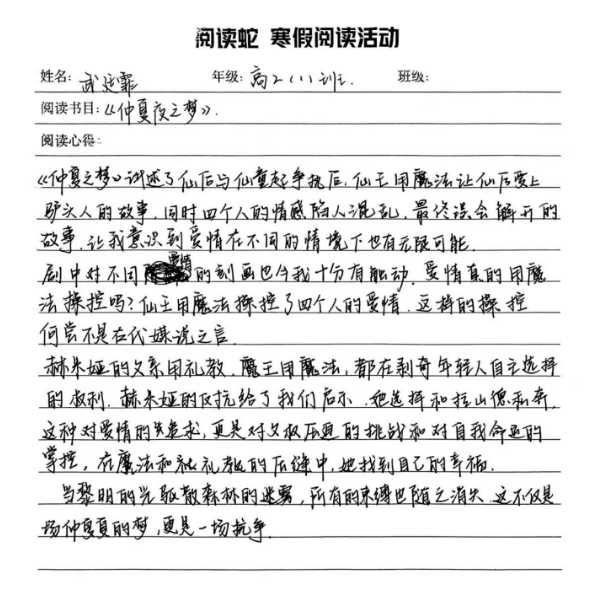 阅读蛇 寒假阅读活动
姓名: 武廷霏 年级: 高2(1)班. 班级:
阅读书目:《仲夏夜之梦》.
阅读心得:
《仲夏之梦》讲述了仙后与仙童起争执后,仙王用魔法让仙后爱上
驴头人的故事,同时四个人的情感陷入混乱,最终误会解开的
故事.让我意识到爱情在不同的情境下也有无限可能.
剧中对不同爱情的刻画也令我十分有触动.爱情真的用魔
法操控吗?仙王用魔法操控了四个人的爱情.这样的操控
何尝不是古代媒说之言.
赫米娅的父亲用礼教.魔王用魔法,都在剥夺年轻人自主选择
的权利.赫米娅的反抗给了我们启示.她选择和拉山德私奔.
这种对爱情的追求,更是对父权压迫的挑战和对自我命运的
掌控。在魔法和礼教的压缝中,她找到自己的幸福.
当黎明的光驱散森林的迷雾,所有的束缚也随之消失.这不仅是
场仲夏夏的梦,更是一场抗争.